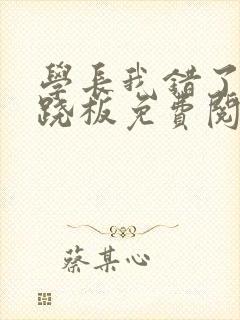 學長我錯了
跷板免費閱
蔡某心